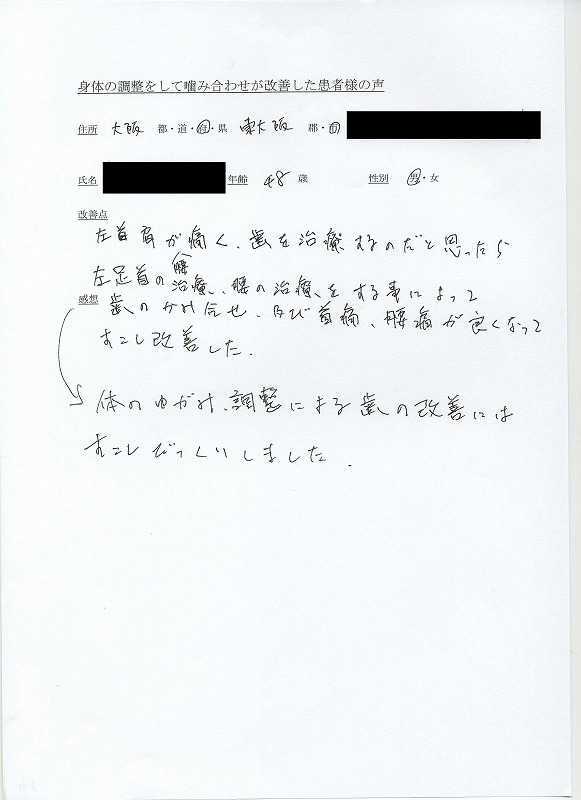 身体の調整をして噛み合わせが改善した患者様の声
住所 大阪 都・道・府・県 東大阪 郡・市
氏名 年齢 48 歳 性別 男・女
改善点
左首肩が痛く、歯を治療するのだと思ったら
左足首の治療、腰の治療、をする事によって
感想 歯のかみ合せ、及び首痛、腰痛が良くなって
すこし改善した.
体のゆがみ、調整による歯の改善には
すこしびっくりしました.